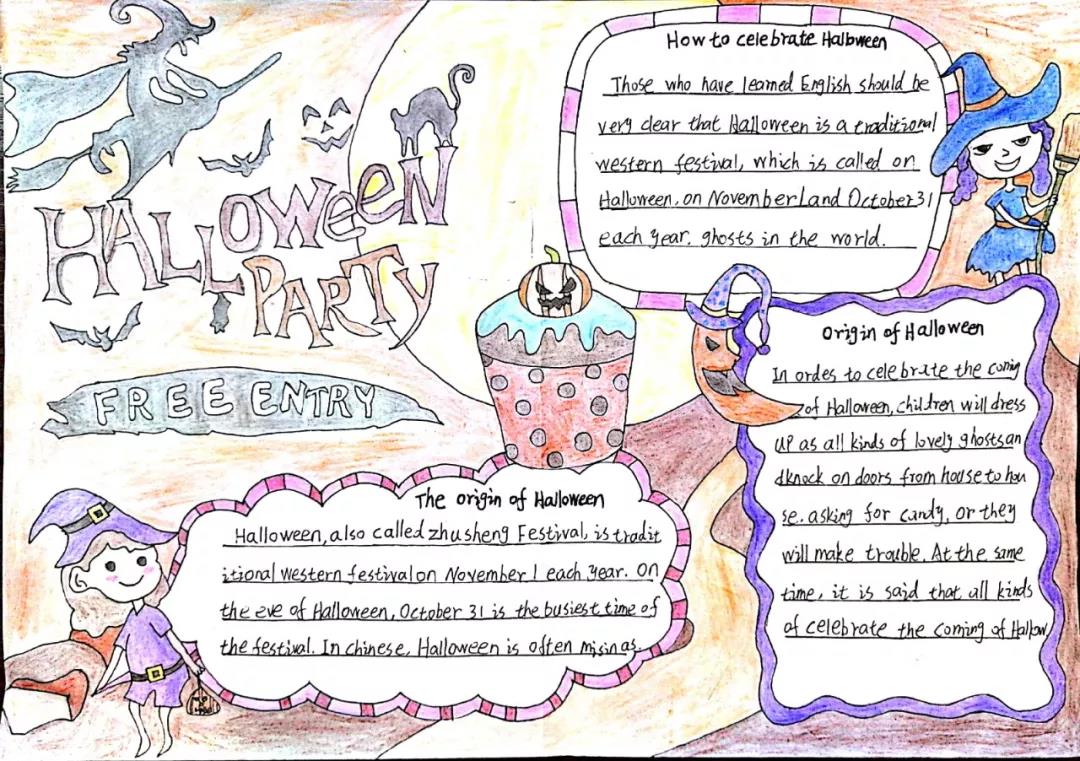 HALLOWEEN
PARTY
FREE ENTRY
How to celebrate Halloween
Those who have learned English should be
very clear that Halloween is a traditional
western festival, which is called on
Halloween, on November Land October 31
each year, ghosts in the world.
Origin of Halloween
In ordes to celebrate the coming
of Halloween, children will dress
up as all kinds of lovely ghosts an
dknock on doors from house to hou
se. asking for candy, or they
will make trouble. At the same
time, it is said that all kinds
of celebrate the coming of Hallow.
The origin of Halloween
Halloween, also called zhusheng Festival, is tradit
itional western festival on November 1 each year. On
the eve of Halloween, October 31 is the busiest time of
the festival. In chinese, Halloween is often misinas.